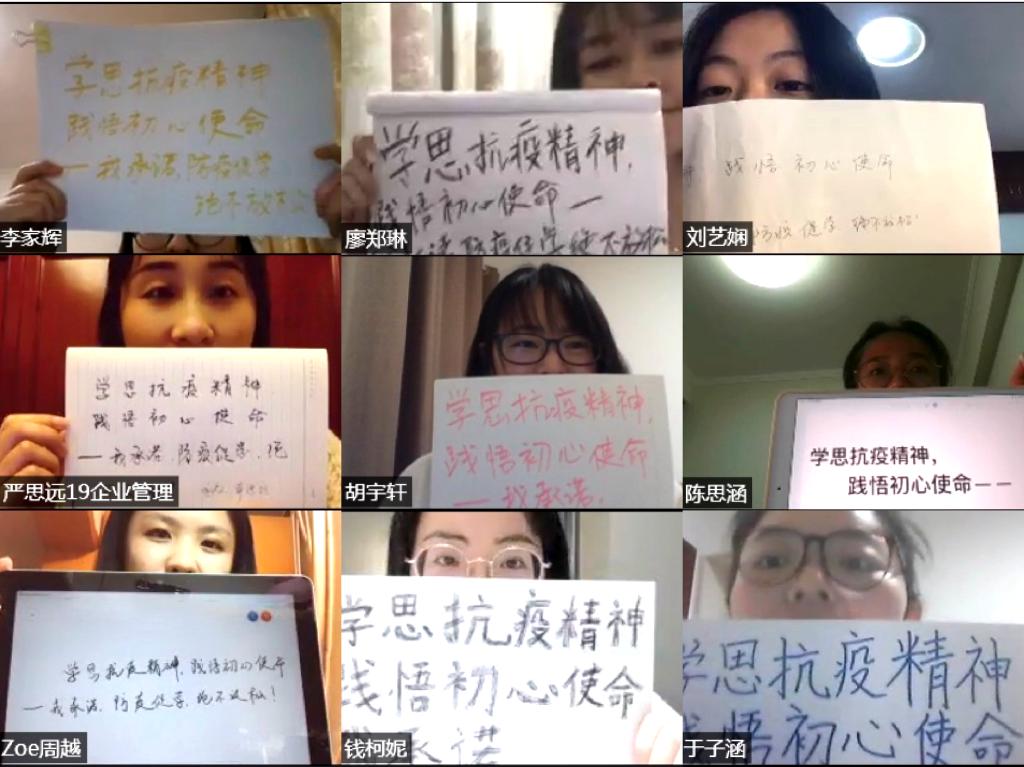 学思抗疫精神
践悟初心使命
一我承诺,防疫促学
绝不放松
李家辉
学思抗疫精神,
践悟初心使命一
防疫促学绝不放松
廖郑琳
践悟初心使命
防疫促学 绝不放松
刘艺娴
学思抗疫精神
践悟初心使命
——我承诺,防疫促学,绝
严思远19企业管理
学思抗疫精神,
践悟初心使命
——我承诺,
胡宇轩
学思抗疫精神,
践悟初心使命——
陈思涵
学思抗疫精神,践悟初心使命
——我承诺,防疫促学,绝不放松!
Zoe周越
学思抗疫精神
践悟初心使命
我承诺
钱柯妮
学思抗疫精神
践悟初心使命
于子涵